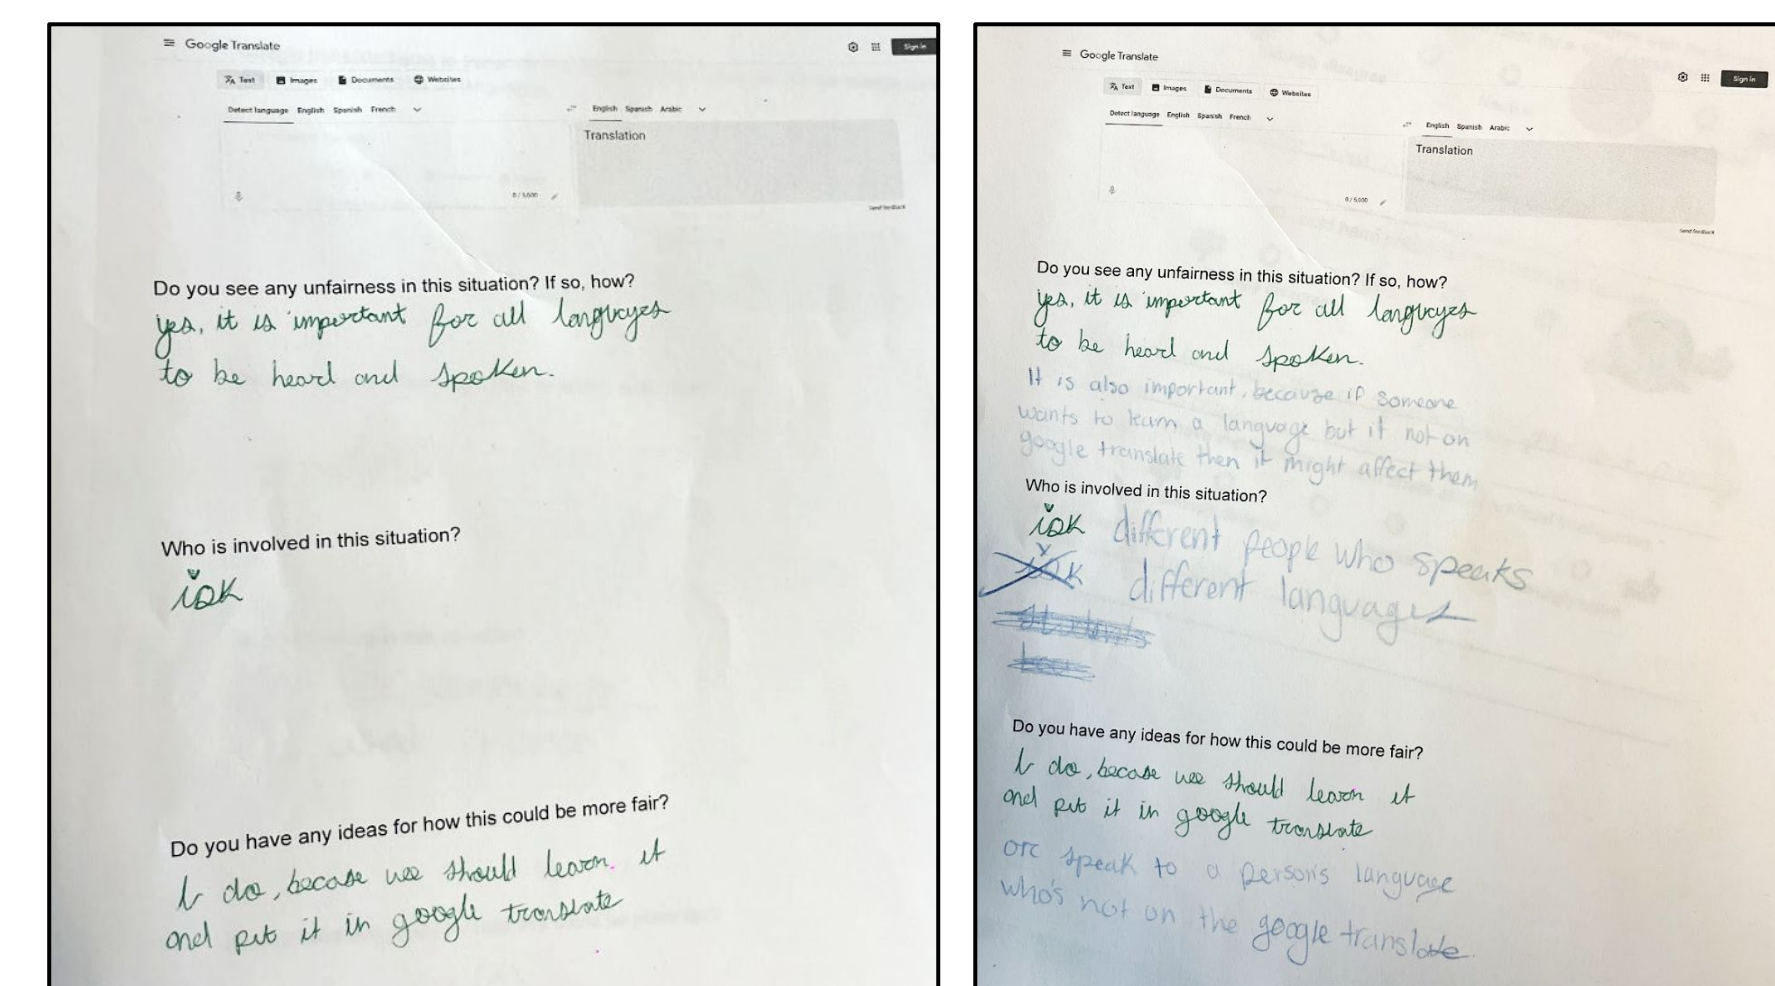 Google Translate
Sign in
Text Images Documents Websites
Detect language English Spanish French
English Spanish Arabic
Translation
0 / 5,000
Send feedback
Do you see any unfairness in this situation? If so, how?
yes, it is important for all languyes
to be heard and spoken.
Who is involved in this situation?
idk
Do you have any ideas for how this could be more fair?
I do, becase we should learn it
and put it in google translate
Google Translate
Sign in
Text Images Documents Websites
Detect language English Spanish French
English Spanish Arabic
Translation
0 / 5,000
Send feedback
Do you see any unfairness in this situation? If so, how?
yes, it is important for all languyes
to be heard and spoken.
It is also important, because if someone
wants to learn a language but it not on
google translate then it might affect them
Who is involved in this situation?
idk different people who speaks
different languages
Do you have any ideas for how this could be more fair?
I do, becase we should learn it
and put it in google translate
or speak to a person's language
who's not on the google translate.